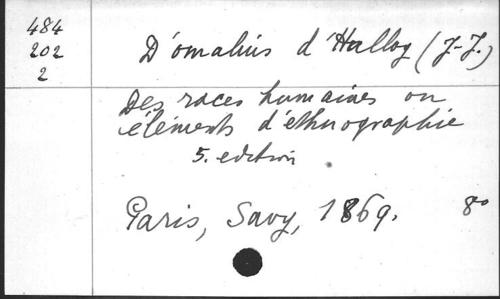 484
202
2
D'omalius d'Halloy (J-J.)
Des races humaines ou
éléments d'éthnographie
5. edition
Paris, Savy, 1869. 8°